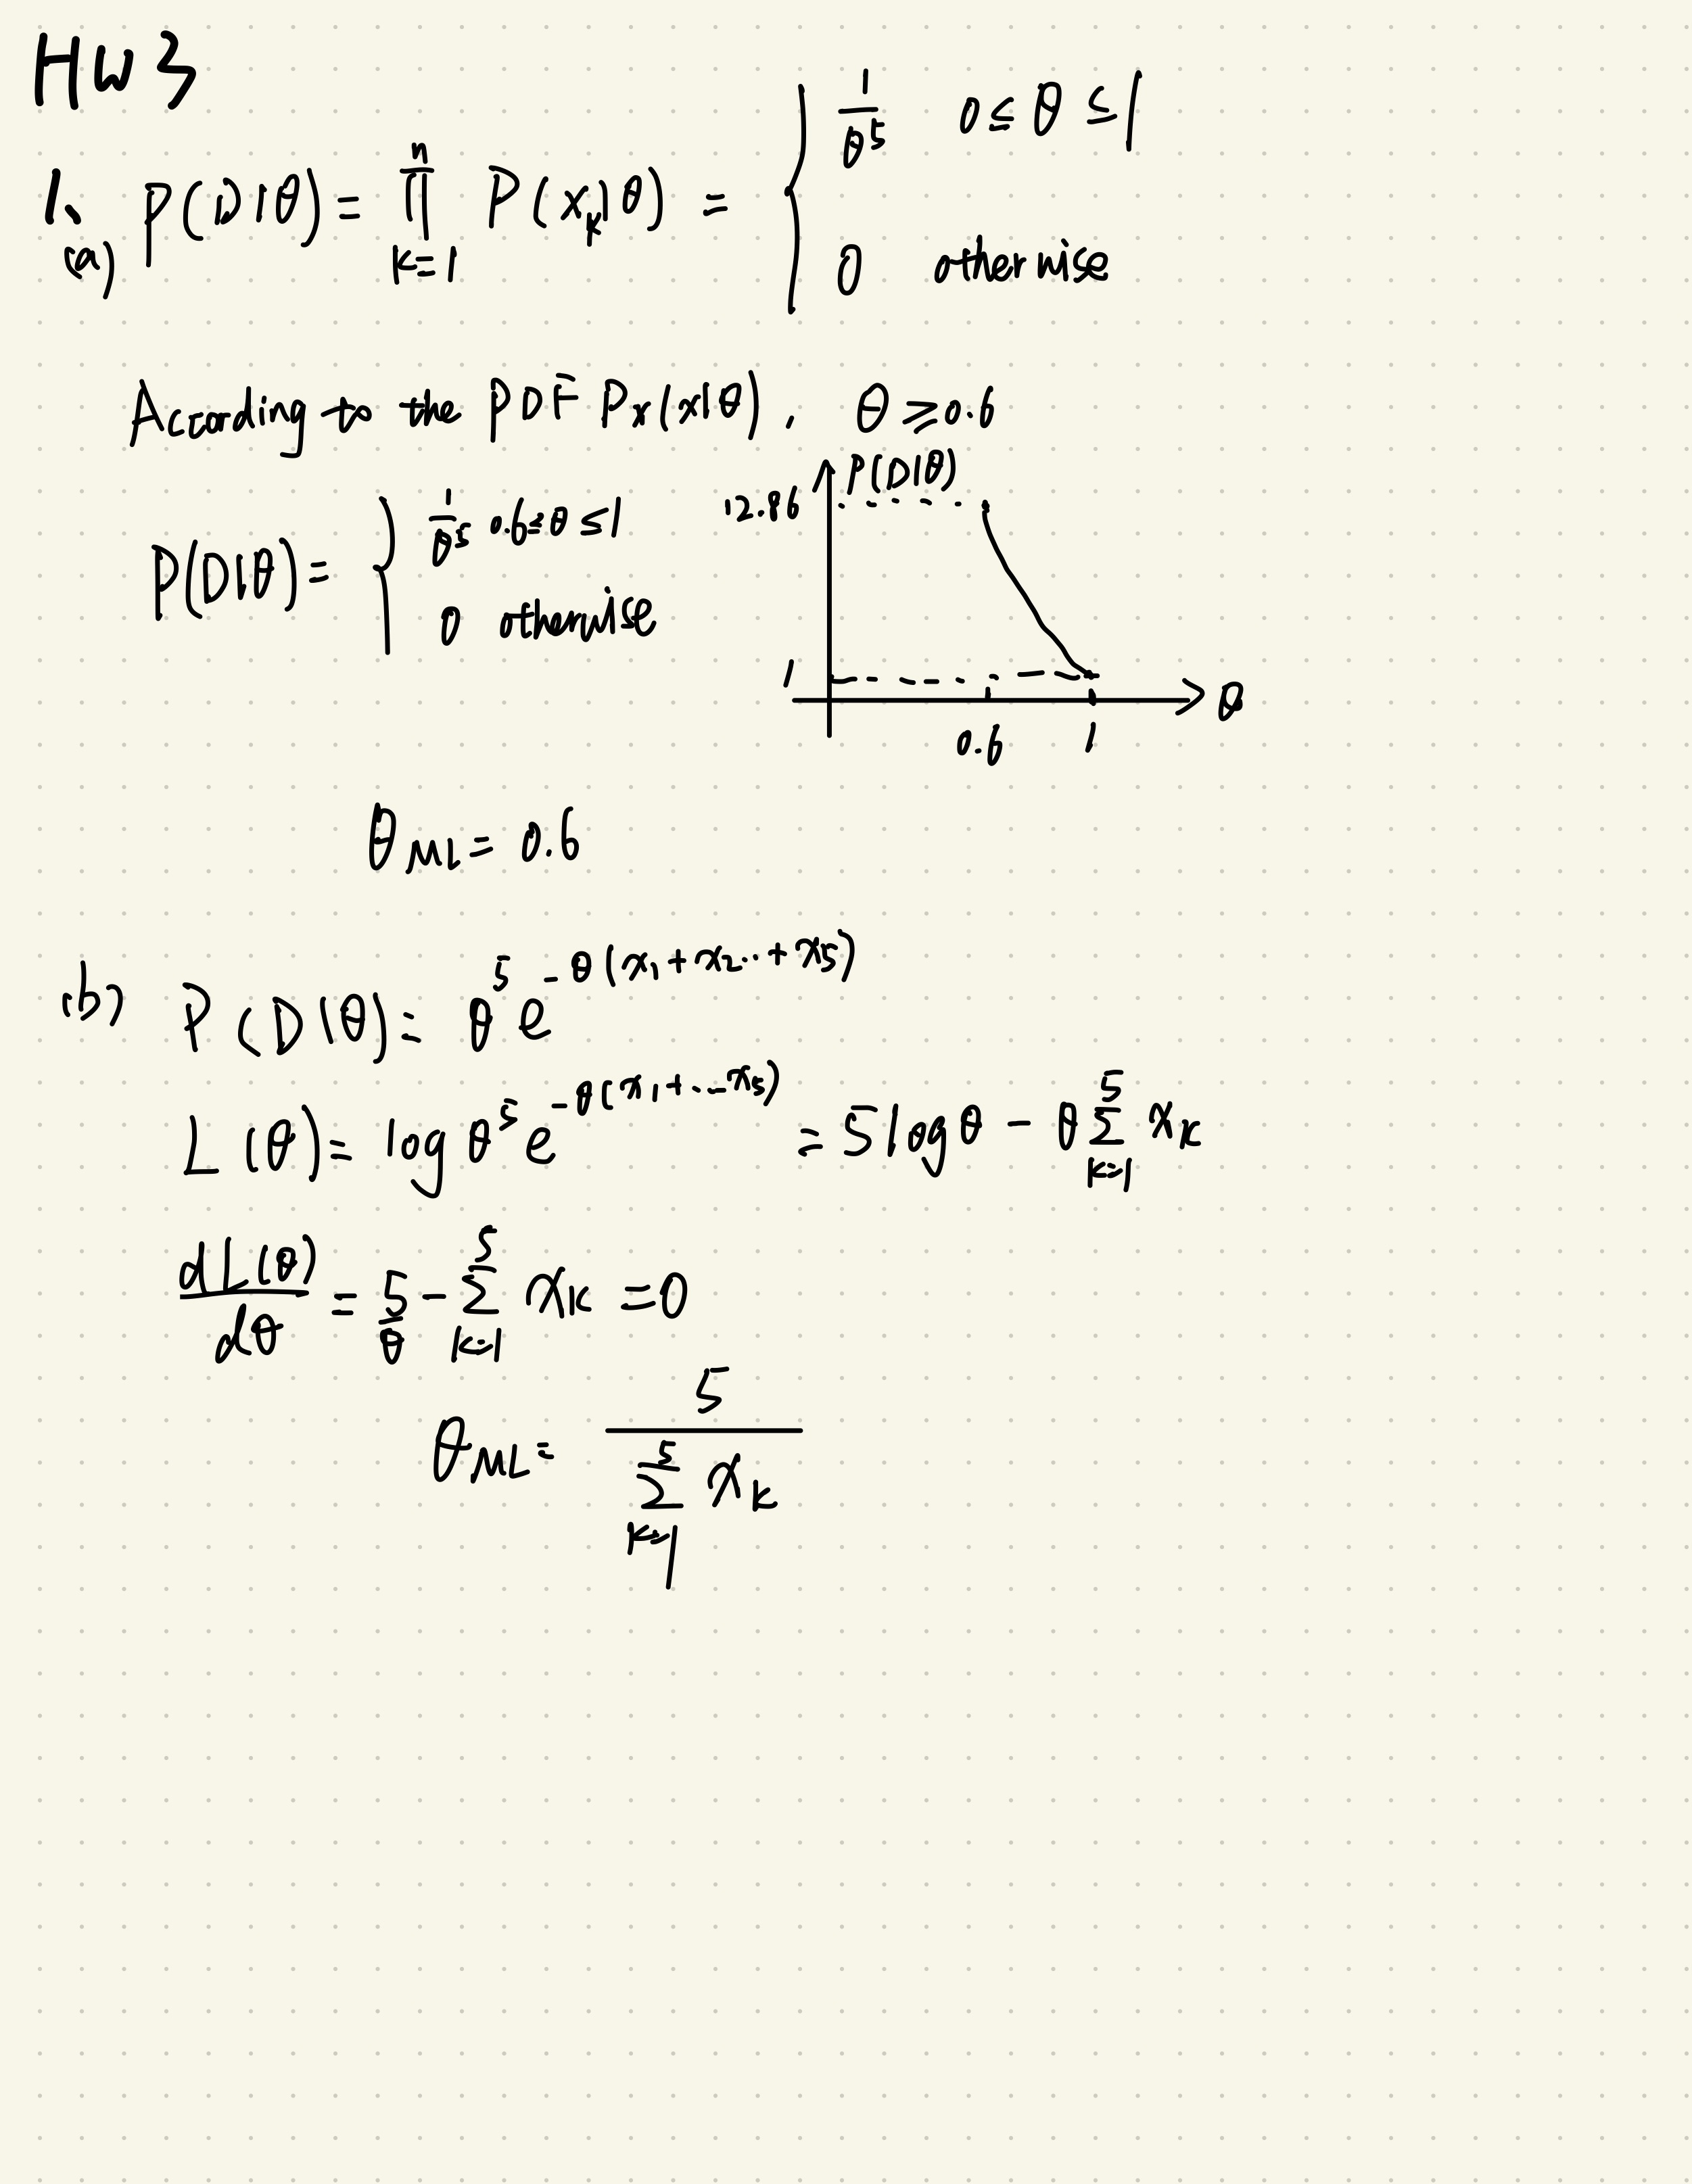 HW 3
1. (a) P(D|θ) = ∏_{k=1}^{n} P(x_k|θ) = { 1/θ^5   0 ≤ θ ≤ 1
0   otherwise
According to the PDF P_x(x|θ), θ ⩾ 0.6
P(D|θ) = { 1/θ^5   0.6 ≤ θ ≤ 1
0   otherwise
P(D|θ)
12.86
1
0.6   1   θ
θ_ML = 0.6
(b) P(D|θ) = θ^5 e^{-θ(x_1 + x_2 ... + x_5)}
L(θ) = log θ^5 e^{-θ(x_1 + ... x_5)} = 5 log θ - θ ∑_{k=1}^{5} x_k
dL(θ)/dθ = 5/θ - ∑_{k=1}^{5} x_k = 0
θ_ML = 5 / ∑_{k=1}^{5} x_k